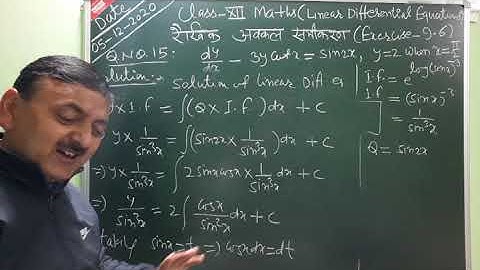 Date
05-12-2020
Class-XII Maths (Linear Differential Equation
रैखिक अवकल समीकरण (Exercise-9.6)
Q.NO.15: dy/dx - 3y cotx = sin2x, y=2 when x=π/2
Solution of Linear Diff eq
y×I.f = ∫(Q×I.F)dx + C
y×1/sin³x = ∫(sin2x×1/sin³x)dx + C
⇒ y×1/sin³x = ∫2sinxcosx×1/sin³x dx + C
⇒ y/sin³x = 2∫cosx/sin²x dx + C
sinx=t ⇒ cosxdx=dt
I.f = e^log(sinx)^-3
I.f = (sinx)^-3
= 1/sin³x
Q = sin2x